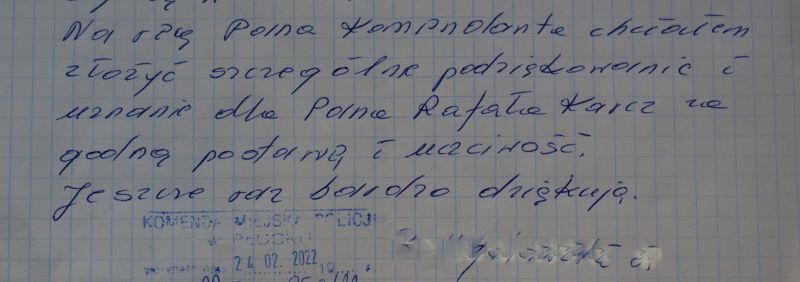 Na ręię Pana Komendanta chciałem
złożyć szczególne podziękowanie i
uznanie dla Pana Rafała Karcz za
godną postawę i uczciwość.
Jeszcze raz bardzo dziękuję.
KOMENDA MIEJSKA POLICJI
w PŁOCKU
24. 02. 2022